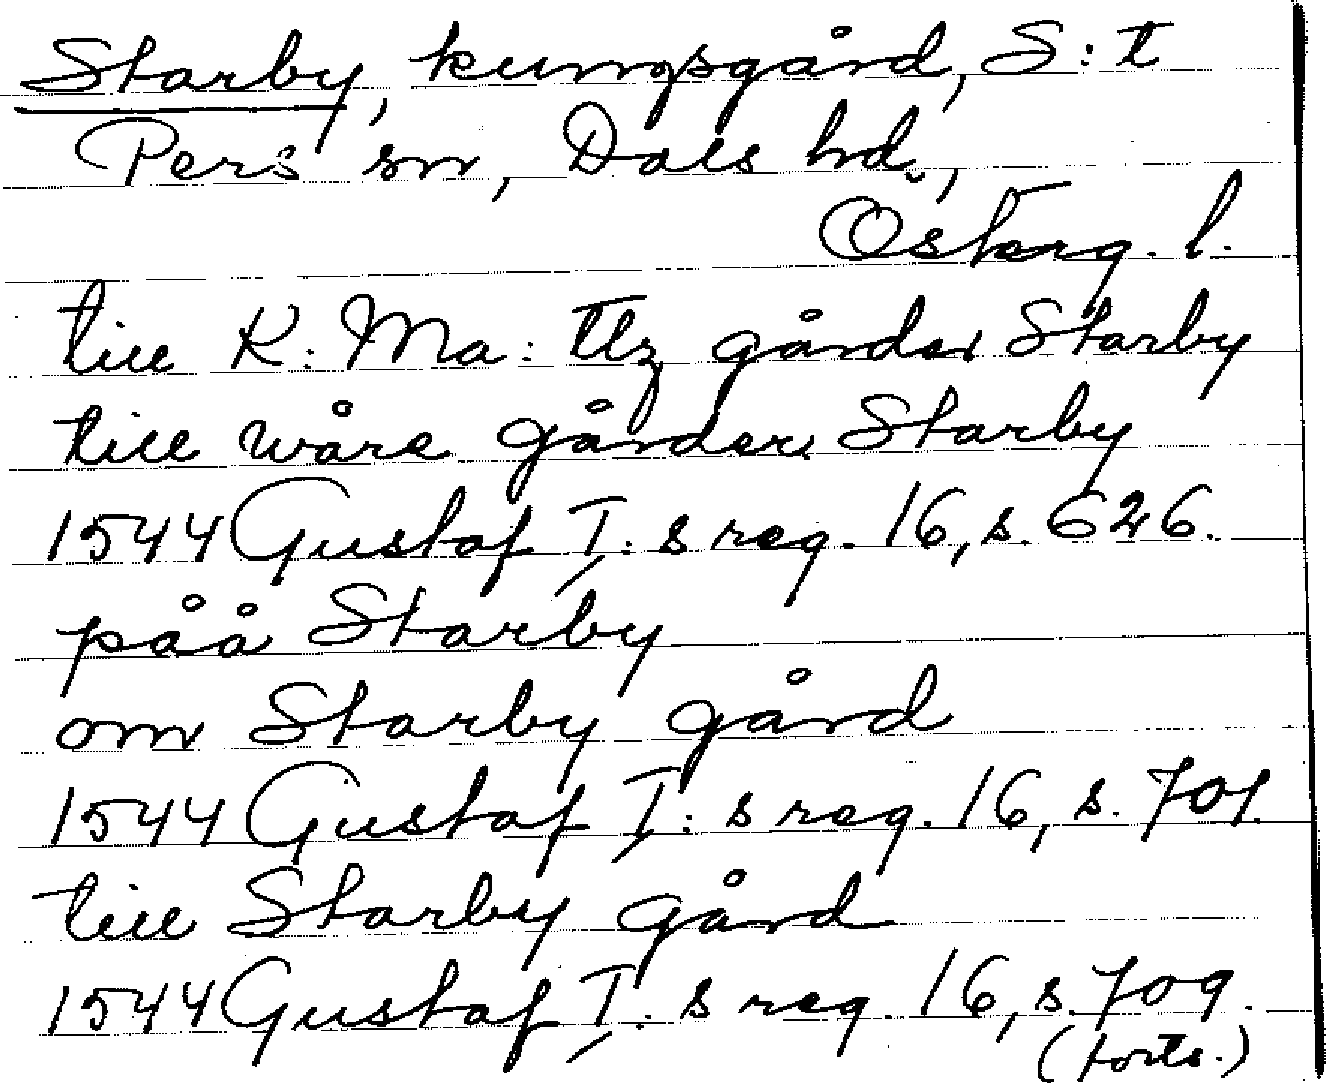 Starby, kungsgård, S:t
Pers sn, Dals hd,
Österg. l.
till K: Ma: ttz gårder Starby
till wåre gårder Starby
1544 Gustaf I:s reg. 16, s. 626.
påå Starby
om Starby gård
1544 Gustaf I:s reg. 16, s. 701.
till Starby gård
1544 Gustaf I:s reg. 16, s. 709.
(forts.)